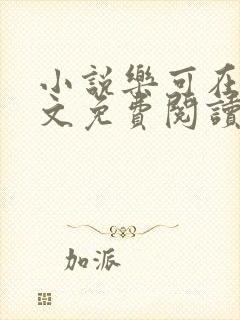 小說樂可在
文免費閱讀
加派